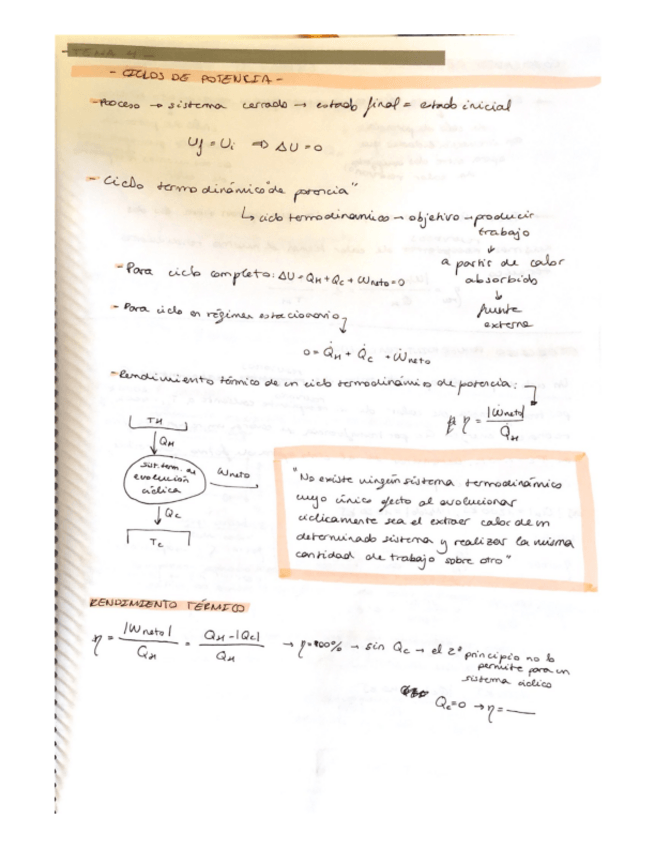 - TEMA 4 -
- CICLOS DE POTENCIA -
- Proceso → sistema cerrado → estado final = estado inicial
Uf = Ui ⇒ ΔU = 0
- Ciclo termodinámico "de potencia"
↳ ciclo termodinámico → objetivo → producir
trabajo
↓
a partir de calor
absorbido
↓
fuente
externa
- Para ciclo completo: ΔU = QH + QC + Wneto = 0
- Para ciclo en régimen estacionario
0 = Q̇H + Q̇C + Ẇneto
- Rendimiento térmico de un ciclo termodinámico de potencia:
η = |Wneto| / QH
TH
↓ QH
sist. term. en
evolución
cíclica
Wneto →
↓ QC
TC
"No existe ningún sistema termodinámico
cuyo único efecto al evolucionar
cíclicamente sea el extraer calor de un
determinado sistema y realizar la misma
cantidad de trabajo sobre otro"
RENDIMIENTO TÉRMICO
η = |Wneto| / QH = QH - |QC| / QH → η=100% → sin QC → el 2º principio no lo
permite para un
sistema cíclico
QC=0 → η = —